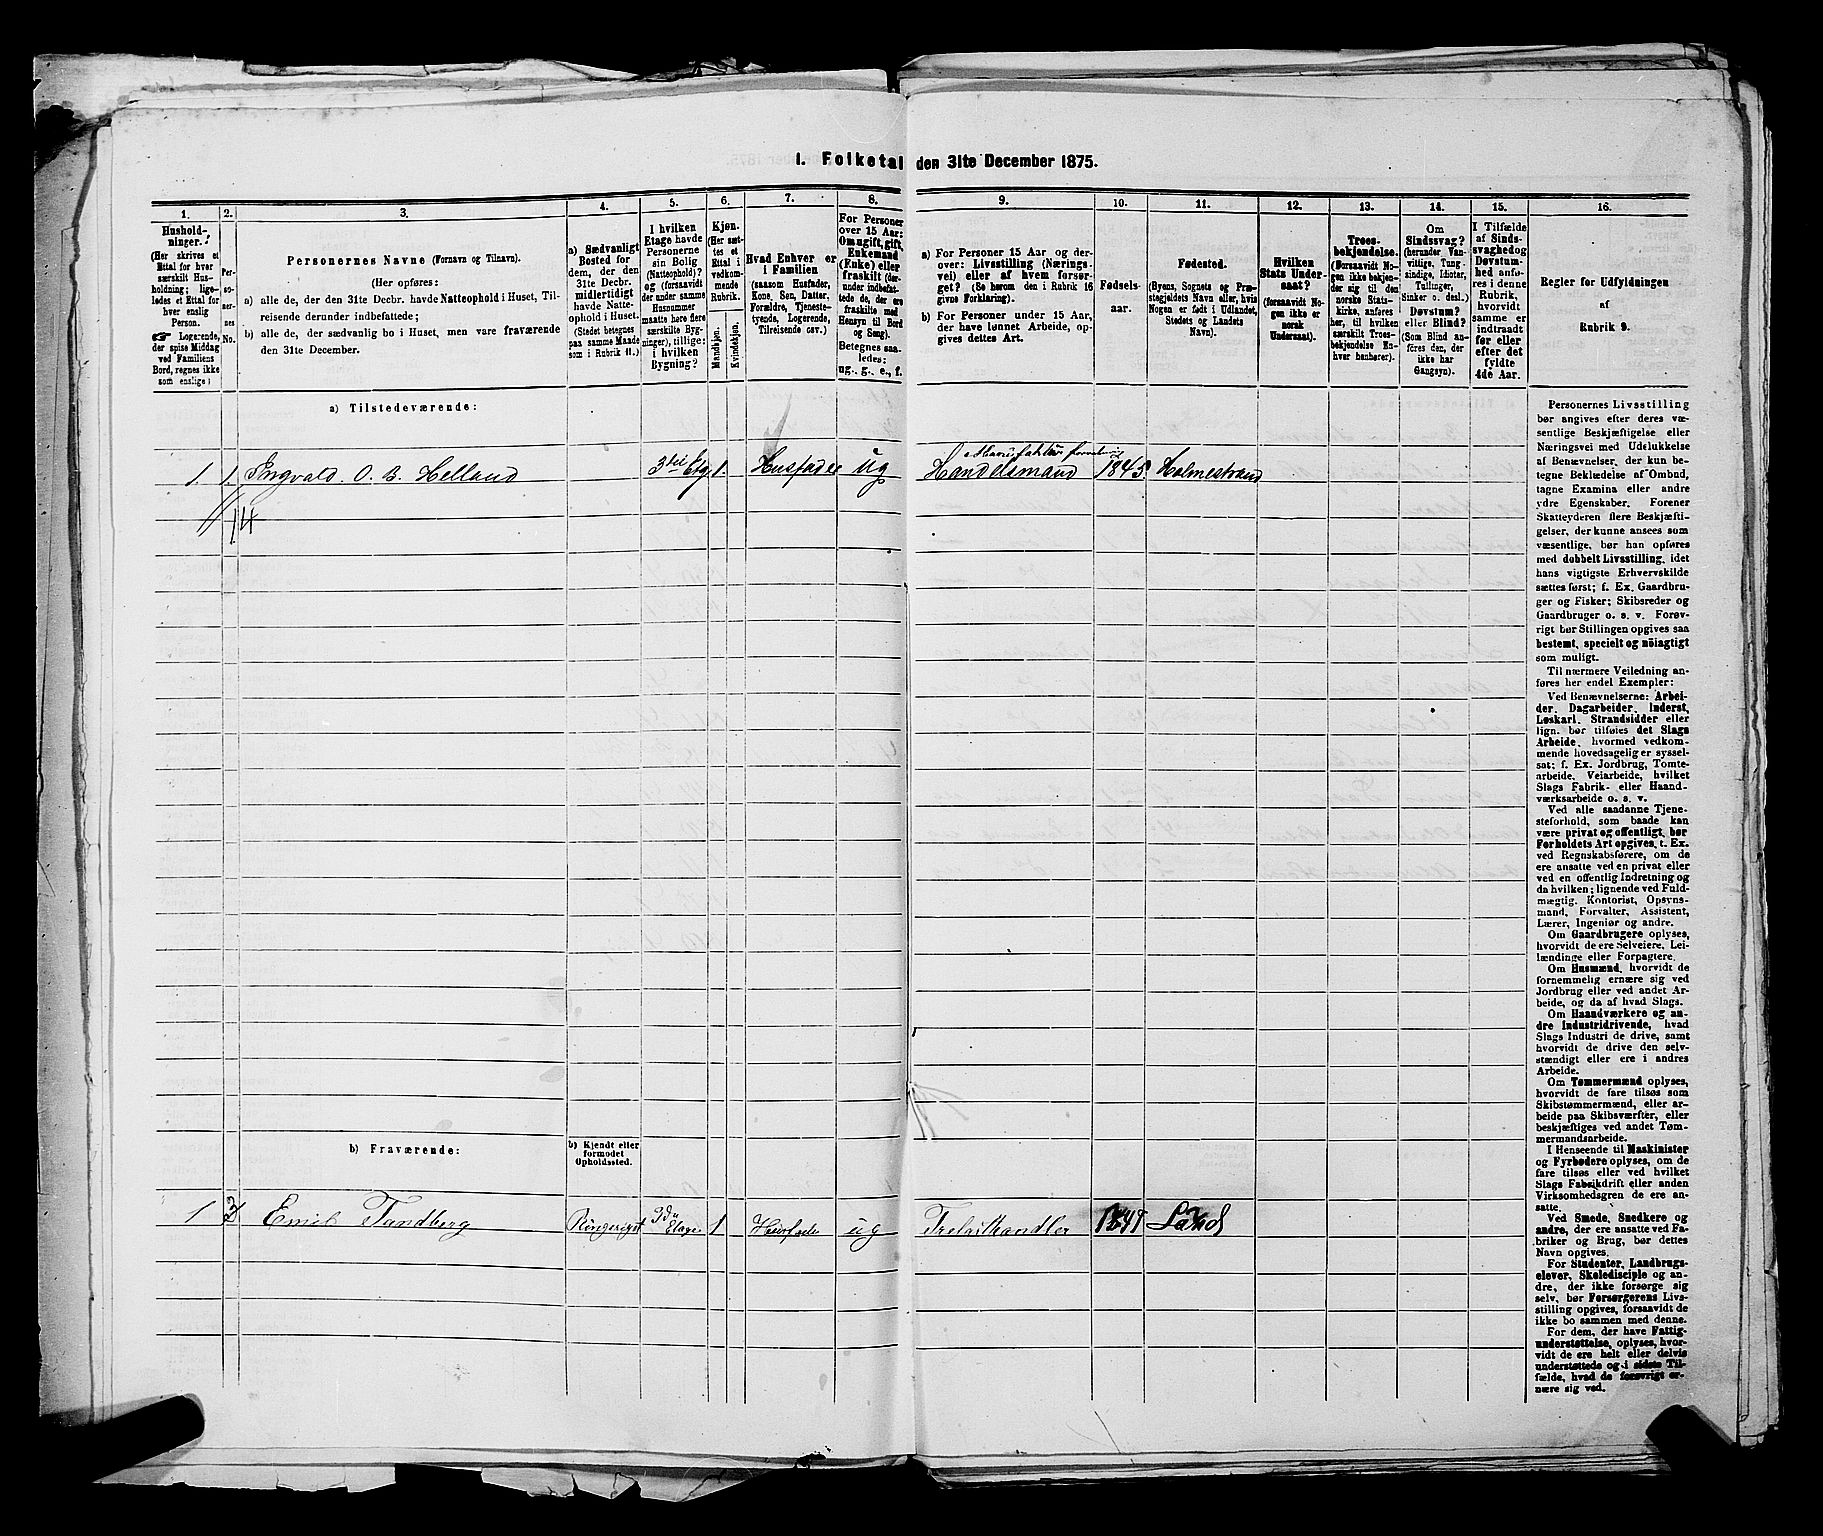 1. Folketal den 31te December 1875.
1. 2. 3. 4. 5. 6. 7. 8. 9. 10. 11. 12. 13. 14. 15. 16.
Hushold-
ninger.
(Her skrives et
Ettal for hver
særskilt Hus-
holdning; lige-
ledes et Ettal for
hver enslig
Person.
☞ Logerende,
der spise Middag
ved Familiens
Bord, regnes ikke
som enslige)
Per-
so-
ner-
nes
No.
Personernes Navne (Fornavn og Tilnavn).
(Her opføres:
a) alle de, der den 31te Decbr. havde Natteophold i Huset, Til-
reisende derunder indbefattede;
b) alle de, der sædvanlig bo i Huset, men vare fraværende
den 31te December.
a) Sædvanligt
Bosted for
dem, der den
31te Decbr.
midlertidigt
havde Natte-
ophold i Huset.
(Stedet betegnes
paa samme Maade
som i Rubrik 11.)
I hvilken
Etage havde
Personerne
sin Bolig
(Natteophold)?
og (forsaavidt
der under samme
Husnummer
maatte høre flere
særskilte Byg-
ninger), tillige:
i hvilken
Bygning?
Kjøn.
(Her sæt-
tes et
Ettal i
vedkom-
mende
Rubrik.
Mandkjøn.
Kvindekjøn.
Hvad Enhver er
i Familien
(saasom Husfader,
Kone, Søn, Datter,
Forældre, Tjeneste-
tyende, Logerende,
Tilreisende osv.)
For Personer
over 15 Aar:
Om ugift, gift,
Enkemand
(Enke) eller
fraskilt (der-
under indbefat-
tede de, der ere
fraskilte med
Hensyn til Bord
og Seng).
Betegnes saa-
ledes:
ug., g., e., f.
a) For Personer 15 Aar og der-
over: Livsstilling (Nærings-
vei) eller af hvem forsør-
get? (Se herom den i Rubrik 16
givne Forklaring).
b) For Personer under 15 Aar,
der have lønnet Arbeide, op-
gives dettes Art.
Fødsels-
aar.
Fødested.
(Byens, Sognets og Præ-
stegjeldets Navn eller, hvis
Nogen er født i Udlandet,
Stedets og Landets
Navn).
Hvilken
Stats Under-
saat?
(forsaavidt No-
gen ikke er
norsk
Undersaat).
Troes-
bekjendelse.
(Forsaavidt No-
gen ikke bekjen-
der sig til den
norske Stats-
kirke, anføres
her, til hvilken
særskilt Troes-
bekjendelse En-
hver henhører).
Om
Sindssvag?
(herunder Van-
vittige, Tung-
sindige, Idioter,
Tullinger,
Sinker o. desl.)
Døvstum?
eller Blind?
(Som Blind an-
føres den, der
ikke har
Gangsyn).
I Tilfælde
af Sinds-
svaghed og
Døvstum-
hed anfø-
res i denne
Rubrik,
hvorvidt
samme er
indtraadt
før eller
efter det
fyldte
4de Aar.
Regler for Udfyldningen
af
Rubrik 9.
a) Tilstedeværende:
1 1. Ingvald O. B. Helland 3die Etg. 1. Husfader ug Handelsmand 1845. Holmestrand
14
b) Fraværende:
b) Kjendt eller
formodet
Opholdssted.
1 Emil Tandberg Ringeriget 3die Etage 1 Husfader ug Trelasthandler Land
Personernes Livsstilling
bør angives efter deres væ-
sentlige Beskjæftigelse eller
Næringsvei med Udelukkelse
af Benævnelser, der kun be-
tegne Beklædelse af Ombud,
tagne Examina eller andre
ydre Egenskaber. Forener
Skatteyderen flere Beskjæfti-
gelser, der kunne ansees som
væsentlige, bør han opføres
med dobbelt Livsstilling, idet
hans vigtigste Erhvervskilde
sættes først; f. Ex. Gaardbru-
ger og Fisker; Skibsreder og
Gaardbruger o. s. v. Forøv-
rigt bør Stillingen opgives saa
bestemt, specielt og nöiagtigt
som muligt.
Til nærmere Veiledning an-
føres her endel Exempler:
Ved Benævnelserne: Arbei-
der, Dagarbeider, Inderst,
Løskarl, Strandsidder eller
lign. bør tilføies det Slags
Arbeide, hvormed vedkom-
mende hovedsagelig er syssel-
sat; f. Ex. Jordbrug, Tomte-
arbeide, Veiarbeide, hvilket
Slags Fabrik- eller Haand-
værksarbeide o. s. v.
Ved alle saadanne Tjene-
steforhold, som baade kan
være privat og offentligt, bør
Forholdets Art opgives, t. Ex.
ved Regnskabsførere, om de
ere ansatte ved en privat eller
ved en offentlig Indretning og
da hvilken; lignende ved Fuld-
mægtig, Kontorist, Opsyns-
mand, Forvalter, Assistent,
Lærer, Ingeniør og andre.
Om Gaardbrugere oplyses,
hvorvidt de ere Selveiere, Lei-
lændinge eller Forpagtere.
Om Husmænd, hvorvidt de
fornemmelig ernære sig ved
Jordbrug eller ved andet Ar-
beide, og da af hvad Slags.
Om Haandværkere og an-
dre Industridrivende, hvad
Slags Industri de drive, samt
hvorvidt de drive den selv-
stændigt eller ere i andres
Arbeide.
Om Tømmermænd oplyses,
hvorvidt de fare tilsøs som
Skibstømmermænd, eller ar-
beide paa Skibsværfter, eller
beskjæftiges ved andet Tøm-
mermandsarbeide.
I Henseende til Maskinister
og Fyrbødere oplyses, om de
fare tilsøs eller ved hvilket
Slags Fabrikdrift eller anden
Virksomhedsgren de ere an-
satte.
Ved Smede, Snedkere og
andre, der ere ansatte ved Fa-
briker og Brug, bør dettes
Navn opgives.
For Studenter, Landbrugs-
elever, Skoledisciple og an-
dre, der ikke forsørge sig
selv, bør Forsørgerens Livs-
stilling opgives, forsaavidt de
ikke bo sammen med denne.
For dem, der have Fattig-
understøttelse, oplyses, hvor-
vidt de ere helt eller delvis
understøttede og i sidste Til-
fælde, hvad de forøvrigt er-
nære sig ved.